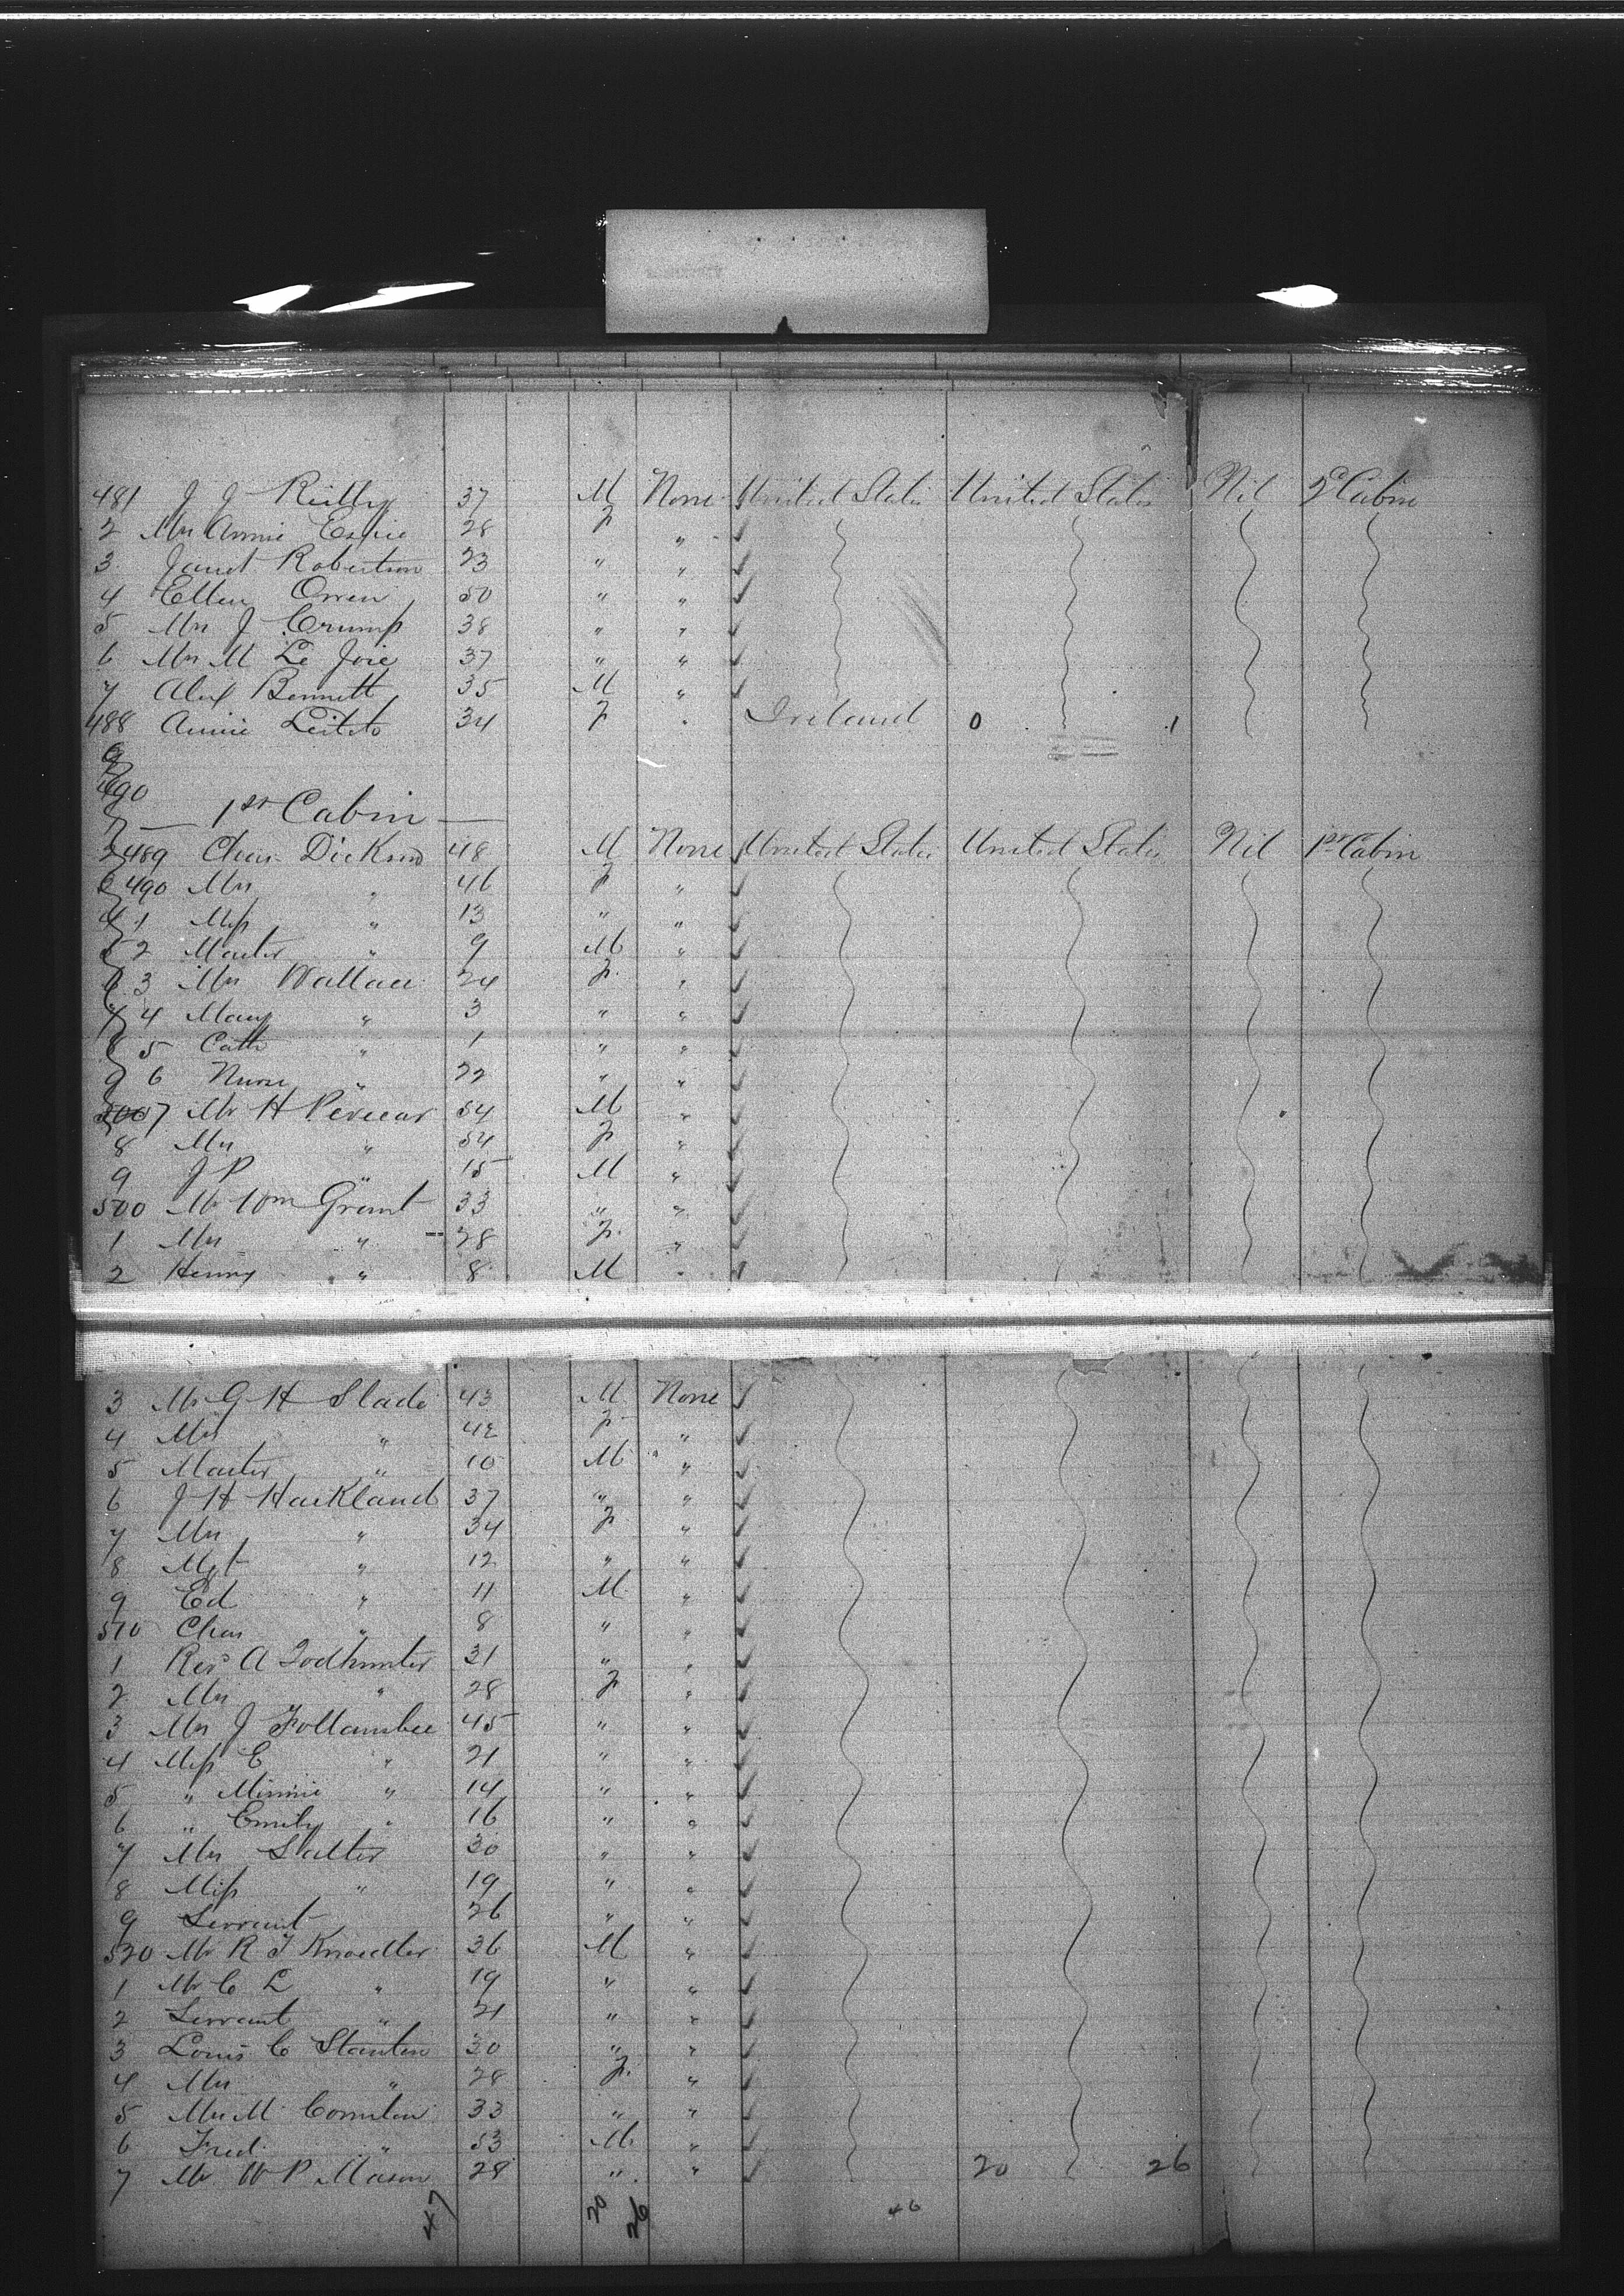 481 J J Reilly 37 M None United States United States Nil 2d Cabin
2 Mrs Annie Espie 28 F " ✓
3 Janet Robertson 23 " " ✓
4 Ellen Orren 50 " " ✓
5 Mrs J Crump 38 " " ✓
6 Mrs M Le Joie 37 " " ✓
7 Alex Bennett 35 M " ✓
488 Annie 34 F " Ireland 0 1
9
490
1st Cabin
489 Chas Dickson 48 M None United States United States Nil 1st Cabin
490 Mrs " 46 F " ✓
1 Miss " 13 " " ✓
2 Master " 9 M " ✓
3 Mrs Wallace 24 F " ✓
4 Mary " 3 " " ✓
5 Cath " 1 " " ✓
6 Nurse " 22 " " ✓
7 Mr H Perecear 54 M " ✓
8 Mrs " 54 F " ✓
9 J P " 15 M " ✓
500 Mr Wm Grant 33 " " ✓
1 Mrs " 28 F " ✓
2 Henry " 8 M " ✓
3 Mr G H Slade 43 M None ✓
4 Mrs " 42 F " ✓
5 Master " 10 M " ✓
6 J H Harkland 37 " " ✓
7 Mrs " 34 F " ✓
8 Mgt " 12 " " ✓
9 Ed " 11 M " ✓
510 Chas " 8 " " ✓
1 Revd A Todhunter 31 " " ✓
2 Mrs " 28 F " ✓
3 Mrs J Follambee 45 " " ✓
4 Miss E " 21 " " ✓
5 " Minnie " 14 " " ✓
6 " Emily " 16 " " ✓
7 Mrs Salter 30 " " ✓
8 Miss " 19 " " ✓
9 Servant 26 " " ✓
520 Mr R F Knoedler 36 M " ✓
1 Mr C L " 19 " " ✓
2 Servant " 21 " " ✓
3 Louis C Stanton 30 " " ✓
4 Mrs " 28 F " ✓
5 Mrs M 33 " " ✓
6 Fred " 53 M " ✓
7 Mr W P Mason 28 " " ✓ 20 26
47 20 26 46